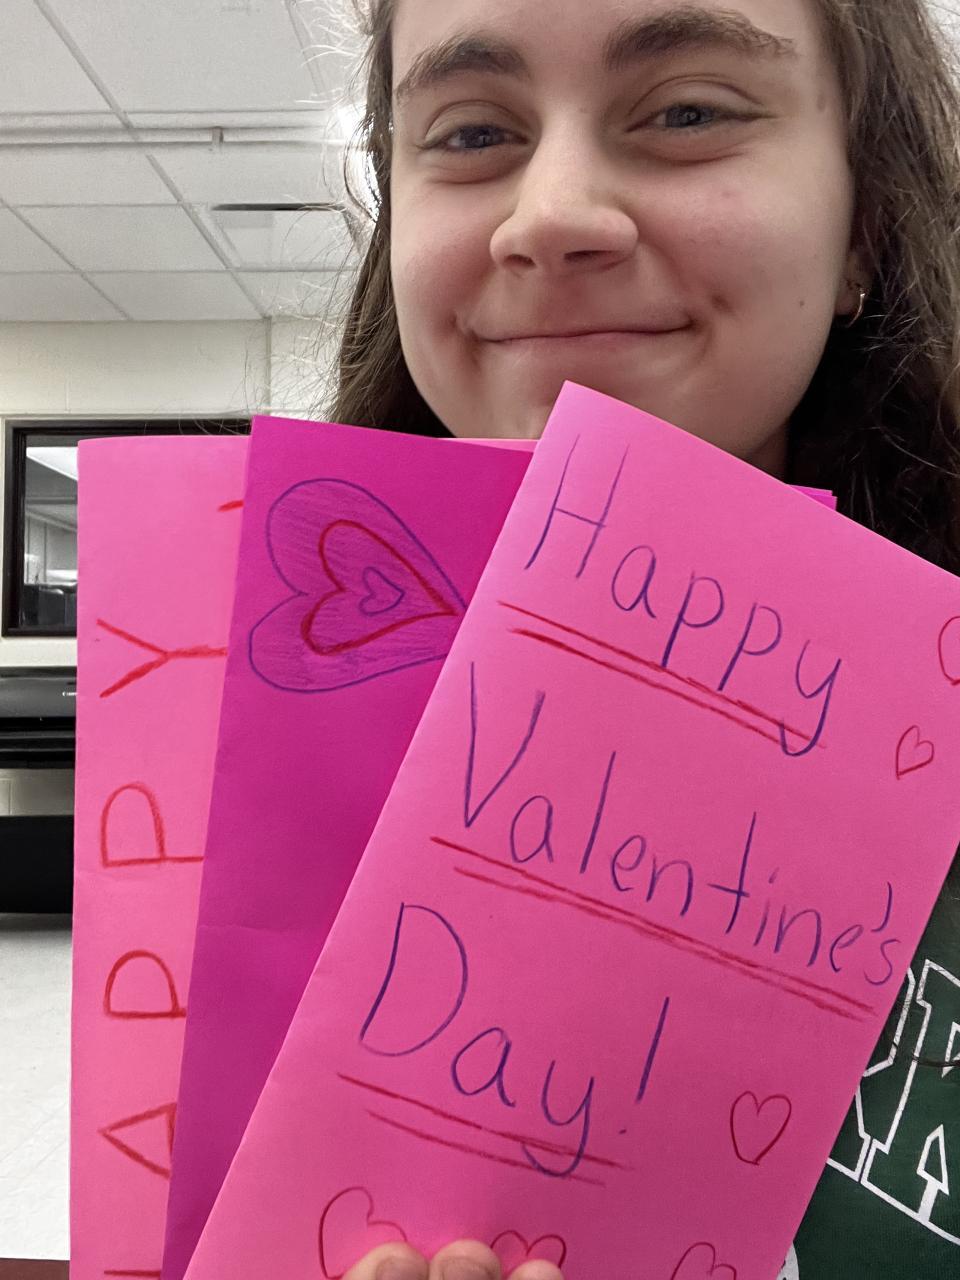 Happy
Valentine's
Day!
HAPPY